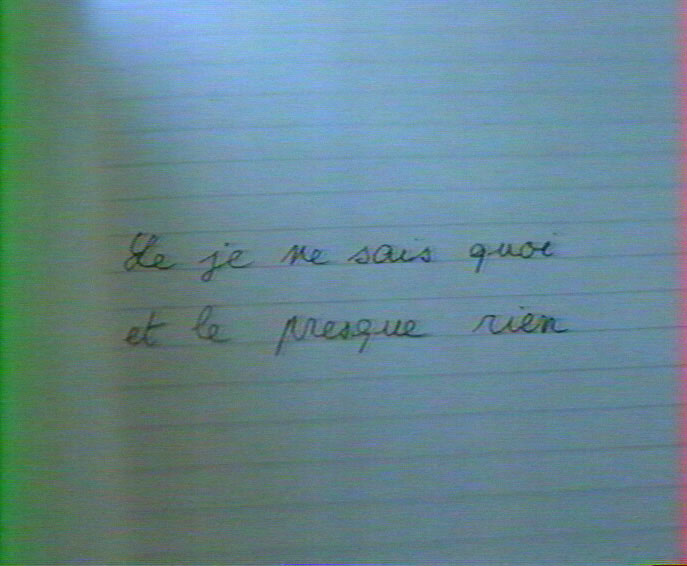 Le je ne sais quoi
et le presque rien